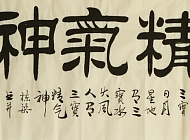 精氣神
三寶
日月
星地
有三
寶水
火風
人有
三寶
精气
神